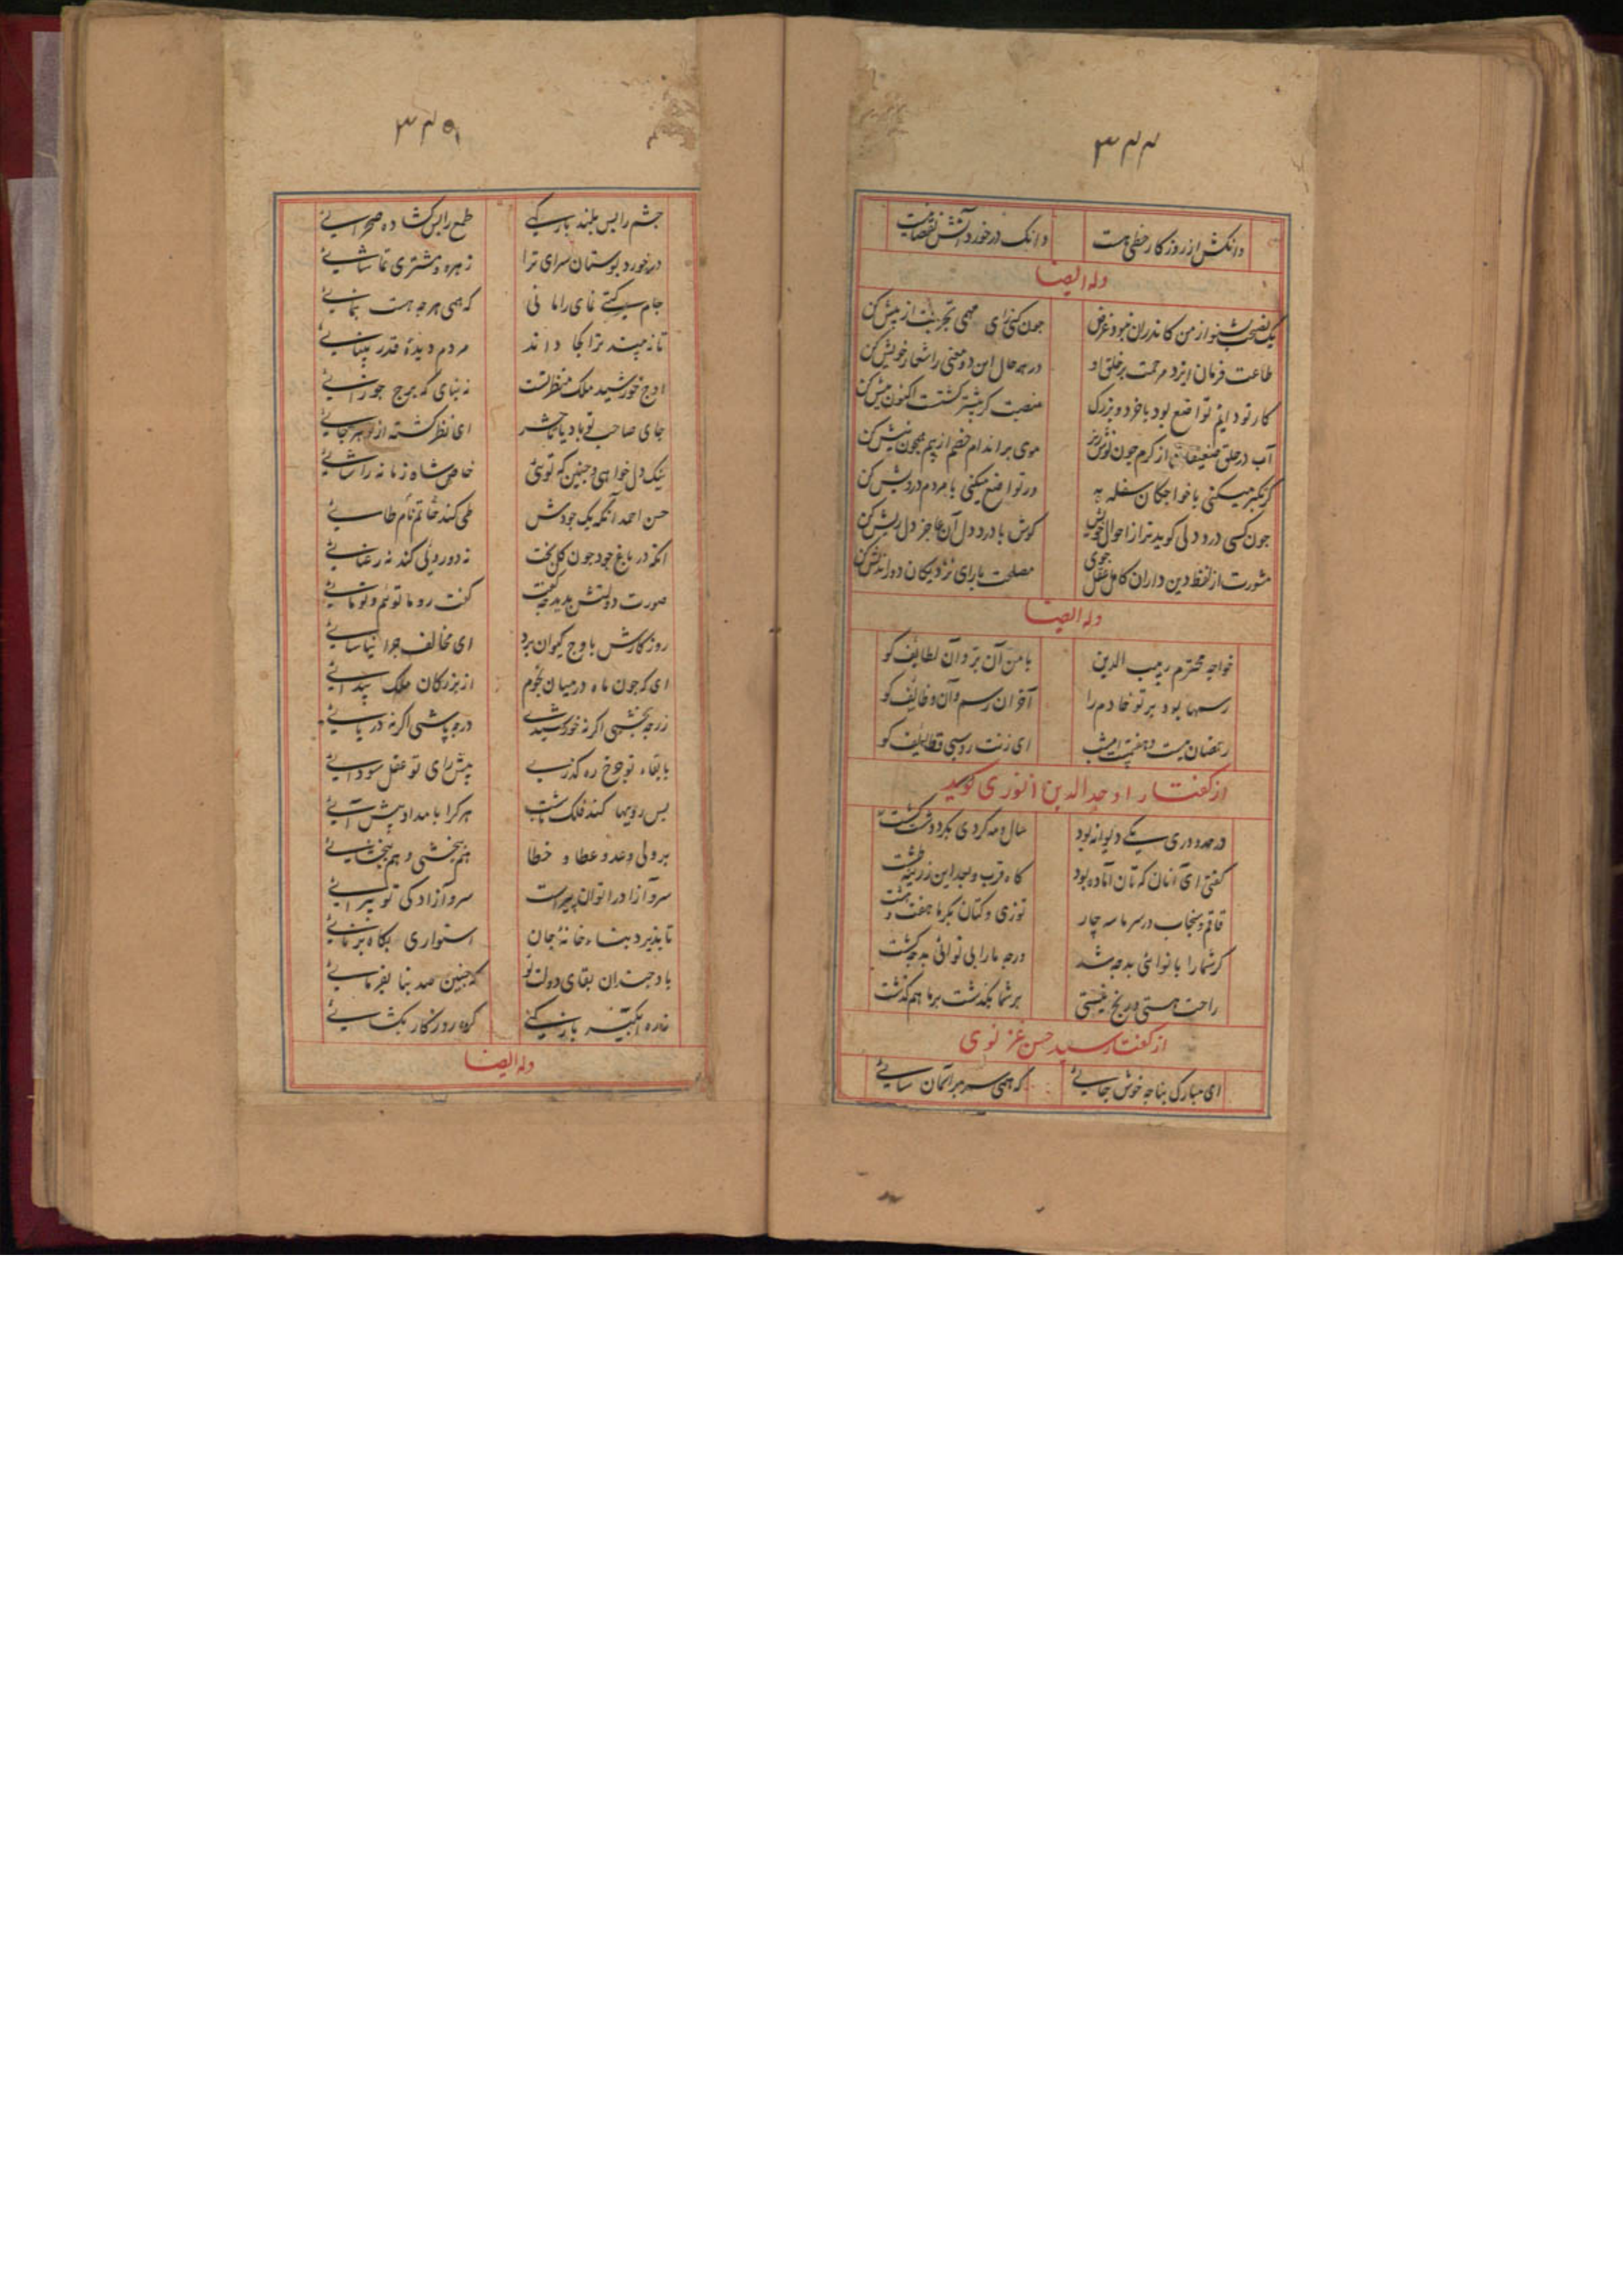 ۳۴۴
وانکش از روزکار حظی هست وانک در خورد آتش
وله ایضا
یک نصیحت بشنو از من کاندران نبود غرض چون کنی رای مهمی تجربت از پیش کن
طاعت فرمان ایزد مرحمت بر خلق او در همه حال این دو معنی را شعار خویش کن
کار تو دایم تواضع بود با خرد و بزرک منصبت کر بیشتر کشتت اکنون بیش کن
آب در حلق ضعیفان از کرم چون نوش ریز موی بر اندام خصم از بیم همچون نیش کن
کر تکبر میکنی با خواجکان سفله به ور تواضع میکنی با مردم درویش کن
چون کسی درد دلی کوید ترا از احوال خویش کوش با درد دل آن عاجز دل ریش کن
مشورت از لفظ دین داران کامل عقل جوی مصلحت با رای نزدیکان دوراندیش کن
وله ایضا
خواجه محترم ربیب الدین با من آن بر و آن لطایف کو
رسمها بود بر تو خادم را آخر آن رسم و آن وظایف کو
رمضان بیست و هفتمست امشب ای زنت روسپی قطایف کو
از کفتار اوحد الدین انوری کوید
در حدود ری یکی دیوانه بود سال و مه کردی بکرد دشت کشت
کفتی ای آنان که تان آماده بود کاه قرب و بعد این زرینه طشت
قاقم و سنجاب در سرما سه چار توزی و کتان بکرما هفت و هشت
کر شما را با نوائی بد چه شد ور چه ما را بی نوائی بد چه کشت
راحت هستی و رنج نیستی بر شما بکذشت بر ما هم کذشت
از کفتار سید حسن غزنوی
ای مبارک بنا چه خوش جائی که همی سر بر آسمان سائی
۳۴۵
چشم را بس بلند بارکهی طمع را بس کشاده صحرائی
در خورد بوستان سرای ترا زهره و مشتری تماشائی
جام کیتی نمای را مانی که همی هر چه هست بنمائی
تا نه بیند ترا کجا داند مردم دیده قدر بینائی
اوج خورشید ملک منظر تست نه بنای که برج جوزائی
جای صاحب تو باد یا حشر ای نظر کشته از تو هر جائی
نیک دل خواهی و چنین که توئی خاص شاه زمانه را شائی
حسن احمد آنکه یک جودش طی کند خاتم نام طائی
آنکه در باغ جود چون کل بخت نه دوروئی کند نه رعنائی
صورت دولتش بدید چه کفت کفت رو ما توئیم و تو مائی
روز کارش باوج کیوان برد ای مخالف چرا نیاسائی
ای که چون ماه در میان نجوم از بزرکان ملک پیدائی
زر چه بخشی اکر نه خورشیدی در چه پاشی اکر نه دریائی
با بقاء تو چرخ ره کذری پیش رای تو عقل سودائی
بس رویها کند فلک هر کرا بامداد پیش آئی
بر ولی وعد و عطا و خطا هم ببخشی و هم ببخشائی
سرو آزاد را توان پیراست سرو آزادکی تو پیرائی
تا پذیرد بناء خانه جان استواری بکاه برنائی
باد چندان بقای دولت تو که چنین صد بنا بفرمائی
کره روزکار بکشائی
وله ایضا